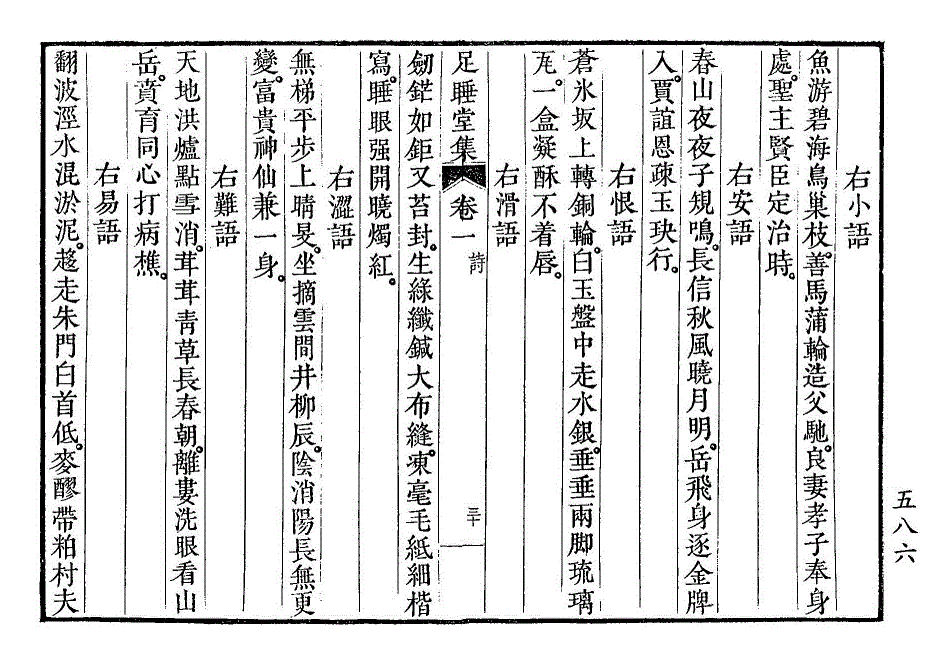 右小語
魚游碧海鳥巢枝。善馬蒲輪造父馳。良妻孝子奉身
處。聖主賢臣定治時。
右安語
春山夜夜子規鳴。長信秋風曉月明。岳飛身逐金牌
入。賈誼恩疎玉玦行。
右恨語
蒼氷坂上轉銅輪。白玉盤中走水銀。垂垂兩脚琉璃
瓦。一盒凝酥不着唇。
右滑語
足睡堂集 卷一 詩 三十
劒鋩如鉅又苔封。生綠纖鍼大布縫。凍毫毛紙細楷
寫。睡眼强開曉燭紅。
右澀語
無梯平步上晴旻。坐摘雲間井柳辰。陰消陽長無更
變。富貴神仙兼一身。
右難語
天地洪爐點雪消。茸茸靑草長春朝。離婁洗眼看山
岳。賁育同心打病樵。
右易語
翻波涇水混淤泥。趍走朱門白首低。麥醪帶粕村夫
五八六